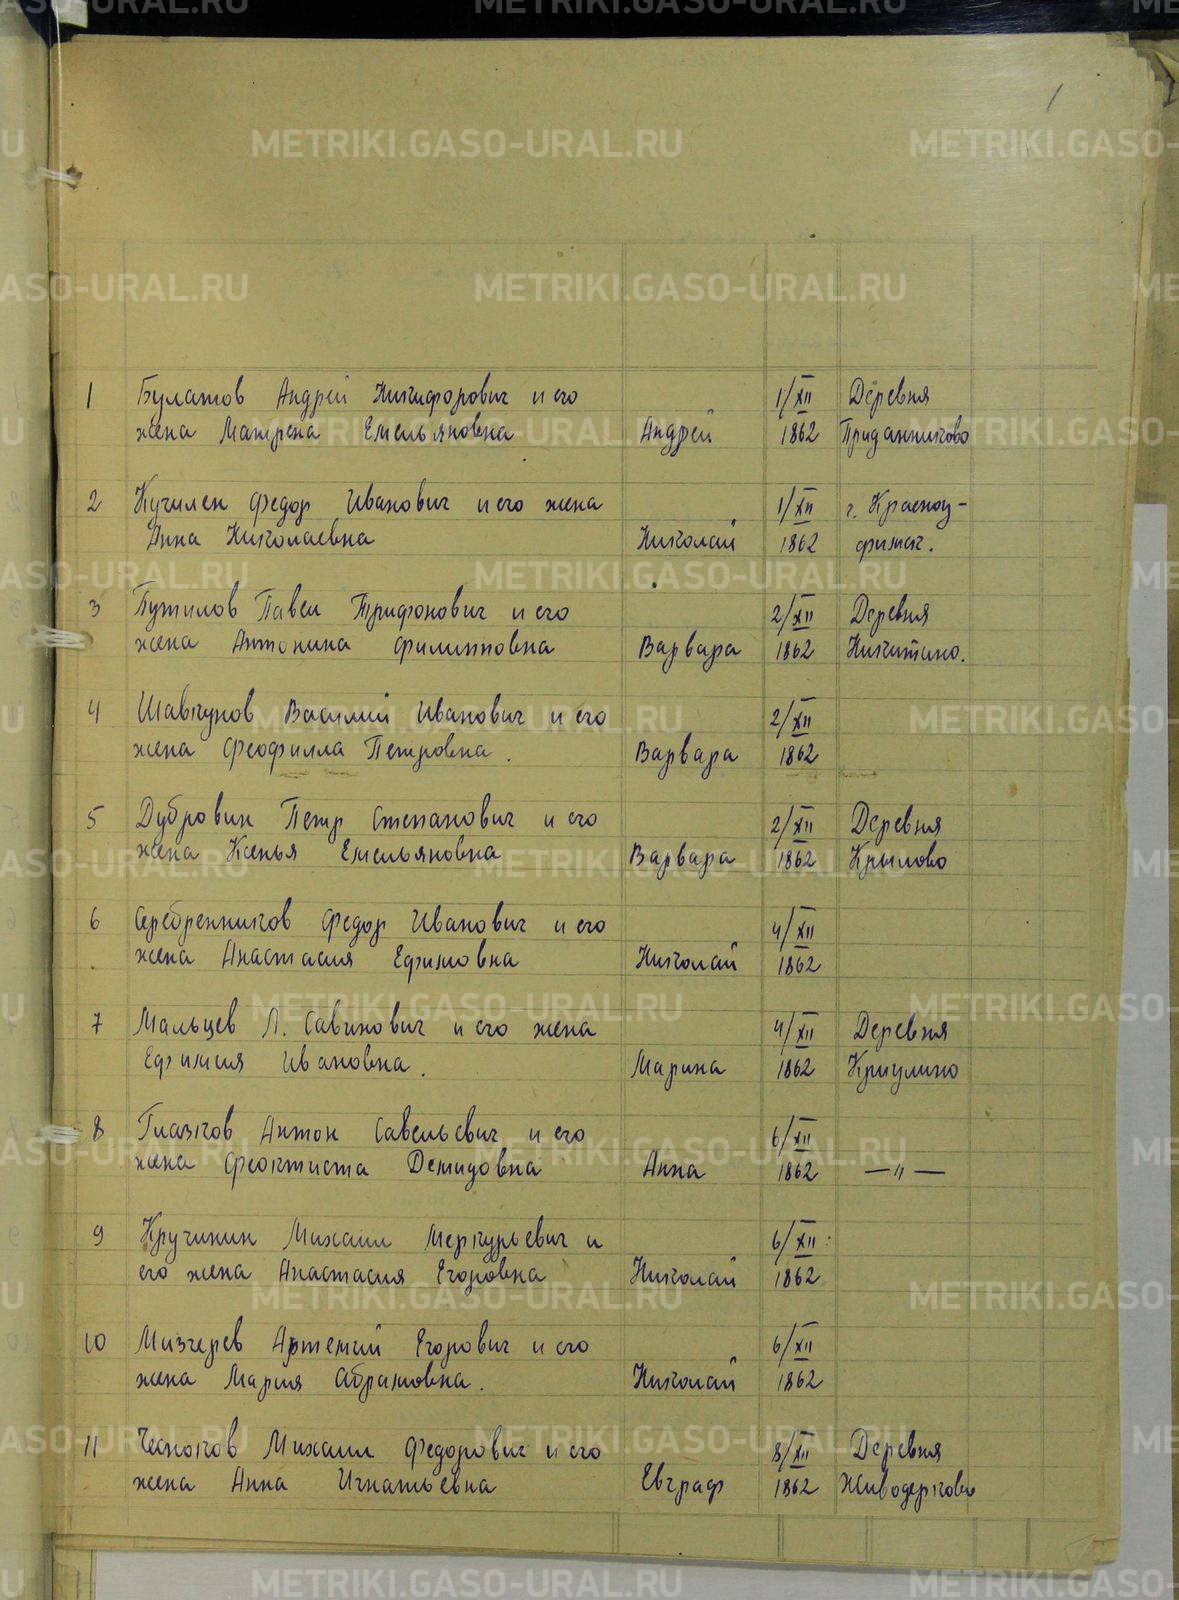 1
1 Булатов Андрей Никифорович и его 1/XII Деревня
жена Матрена Емельяновна Андрей 1862 Приданниково
2 Федор Иванович и его жена 1/XII г. Красноу-
Анна Николаевна Николай 1862 фимск.
3 Путилов Павел Трифонович и его 2/XII Деревня
жена Антонина Филипповна Варвара 1862 Никитино.
4 Шавкунов Василий Иванович и его 2/XII
жена Феофилла Петровна. Варвара 1862
5 Дубровин Петр Степанович и его 2/XII Деревня
жена Ксенья Емельяновна Варвара 1862 Крылово
6 Серебренников Федор Иванович и его 4/XII
жена Анастасия Ефимовна Николай 1862
7 Мальцев Л. Савинович и его жена 4/XII Деревня
Ефимия Ивановна. Марина 1862 Криулино
8 Глазков Антон Савельевич и его 6/XII
жена Феоктиста Демидовна Анна 1862 —〃—
9 Кручинин Михаил Меркурьевич и 6/XII
его жена Анастасия Егоровна Николай 1862
10 Мизгерев Артемий Егорович и его 6/XII
жена Мария Абрамовна. Николай 1862
11 Чесноков Михаил Федорович и его 8/XII Деревня
жена Анна Игнатьевна Евграф 1862 Живодерково
METRIKI.GASO-URAL.RU